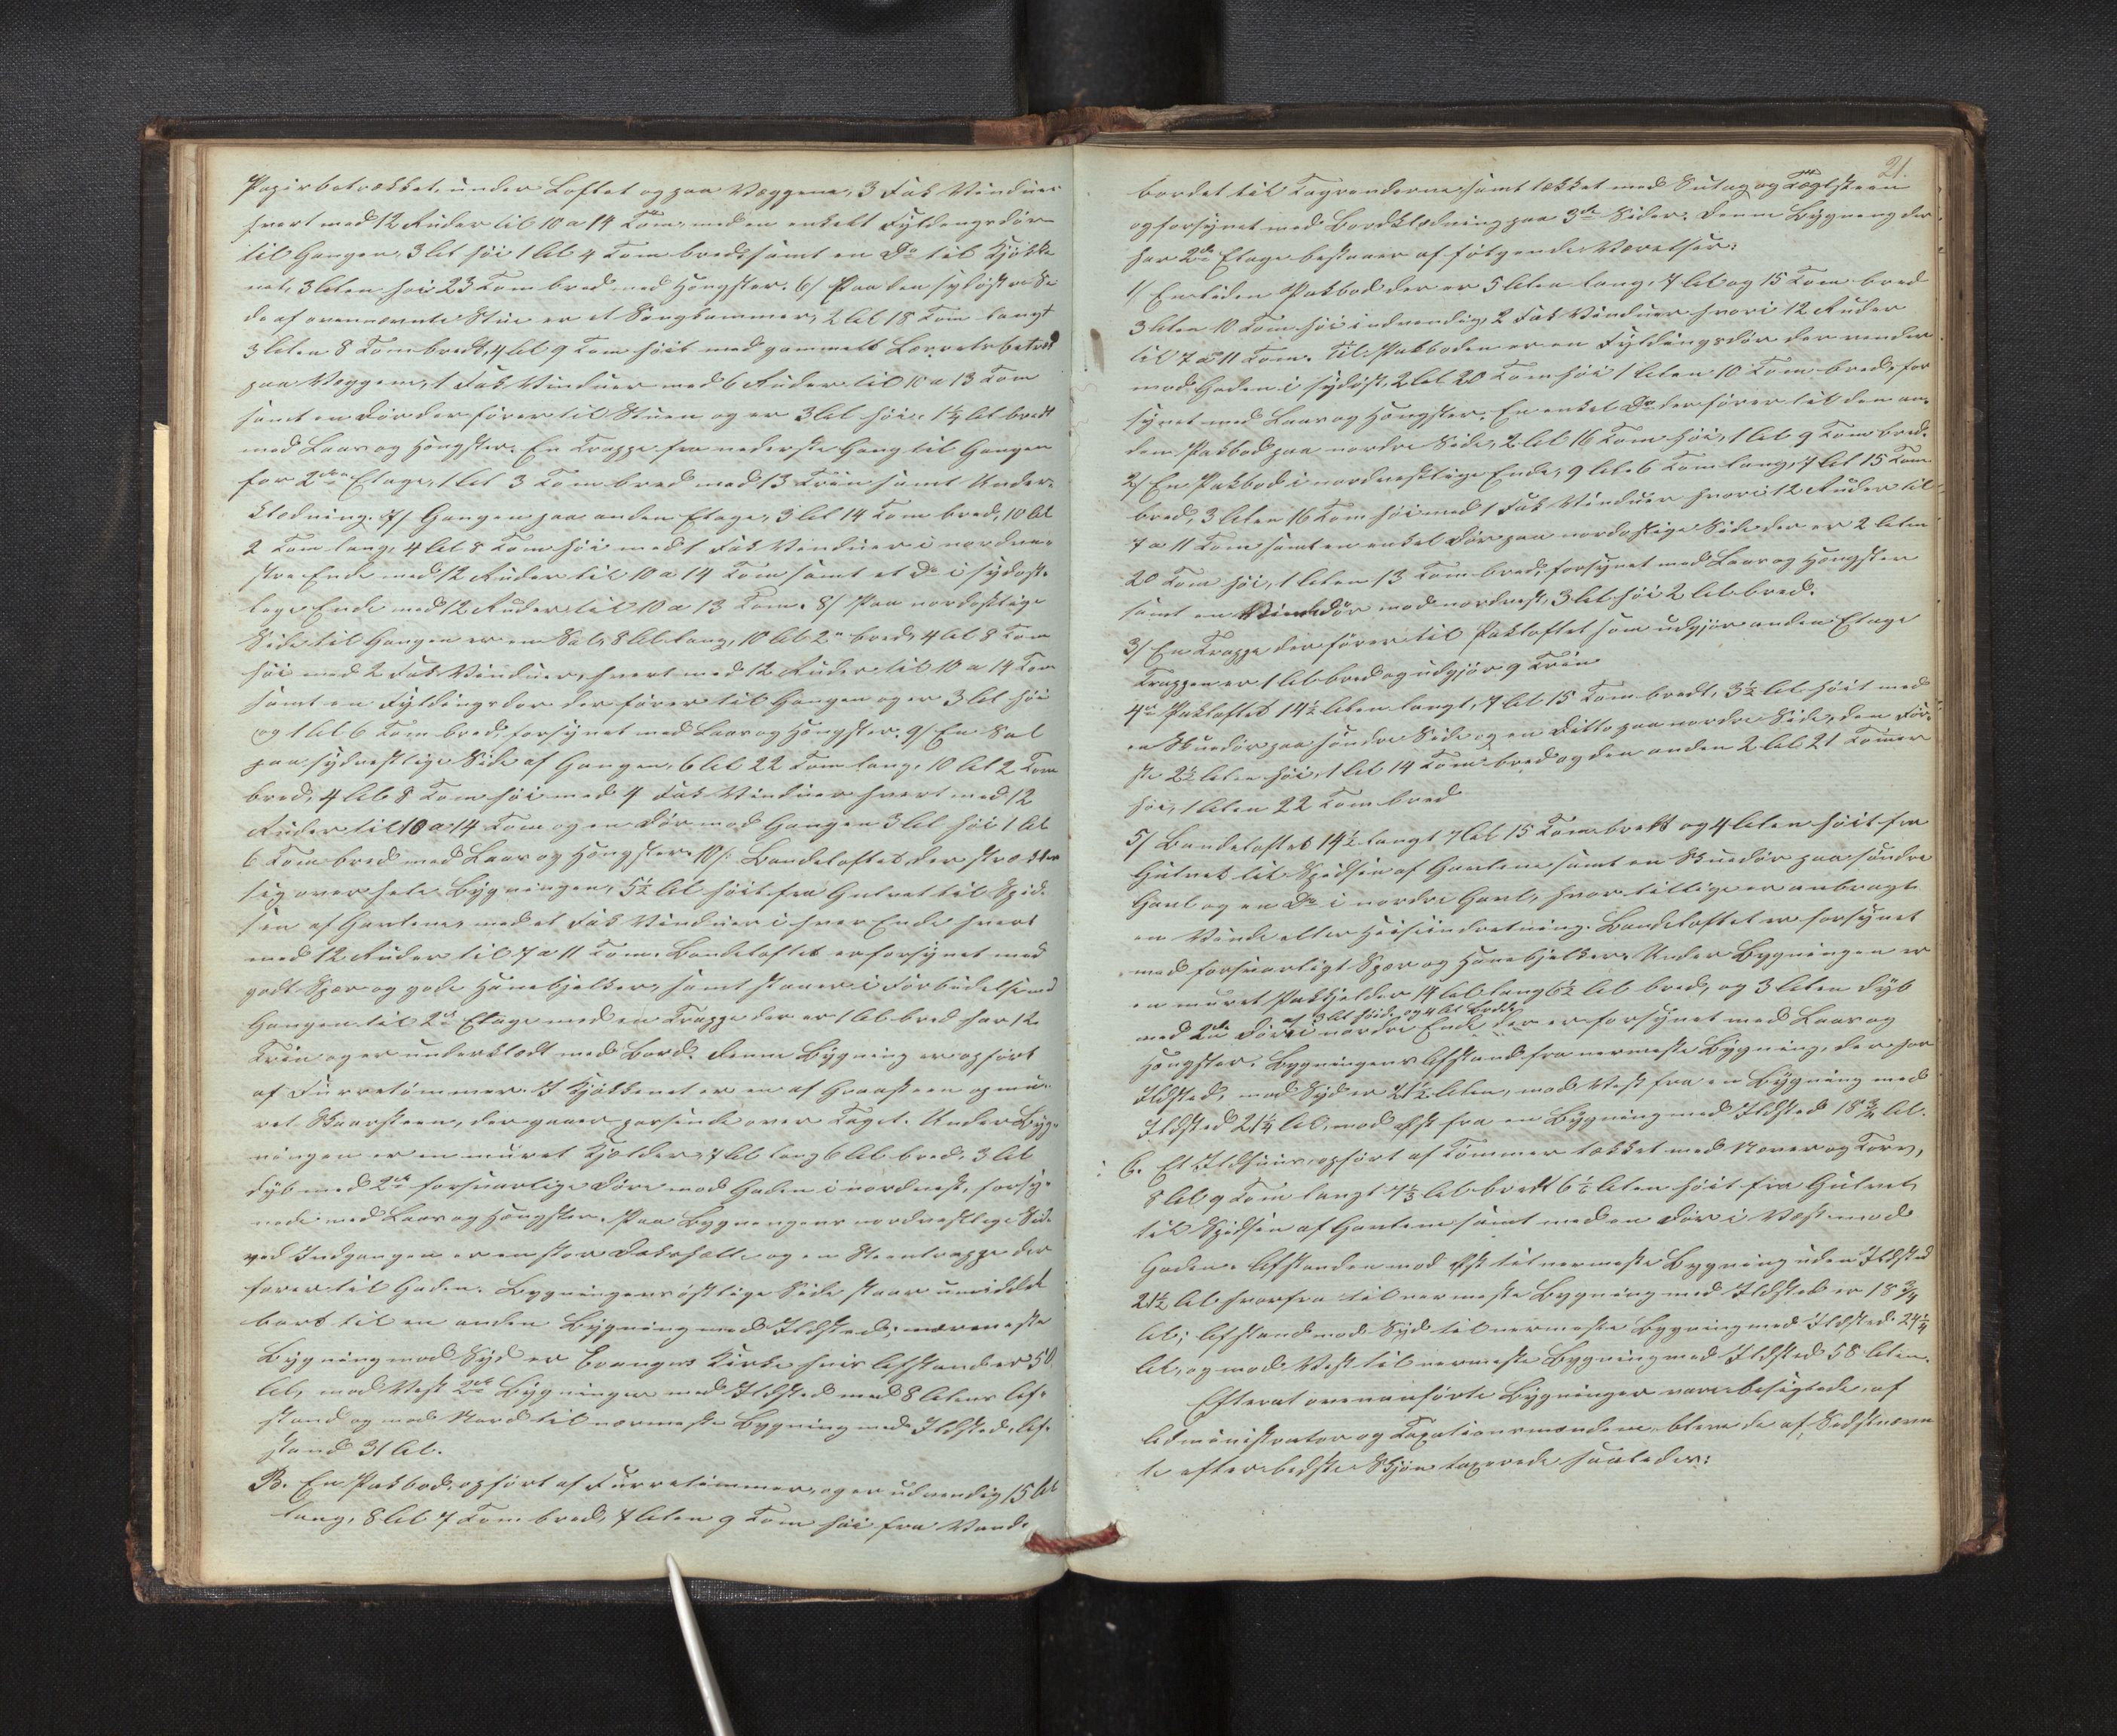 Papirbetrækket under Loftet og paa Væggene, 3 Fak Vinduer
hvert med 12 Ruder til 10 a 14 Tom, med en enkelt Fyldingsdør
til Gangen, 3 Al høi 1 Al 4 Tom bred samt en Do til Kjøkke
net, 3 Alen høi 23 Tom bred med Hængsler. 6/ Paa den sydøstre Si
de af ovennævnte Stue er et Sengkammer, 2 Al 18 Tom langt
3 Alen 8 Tom bredt, 4 Al 9 Tom høit med gammelt Lærretsbetræk
paa Væggene, 1 Fak Vinduer med 6 Ruder til 10 a 13 Tom
samt en Dør der fører til Stuen og er 3 Al høi, 1¼ Al bredt
med Laas og Hængsler. En Trappe fra nederste Gang til Gangen
for 2den Etage, 1 Al 3 Tom bred med 13 Trin samt Under-
klædning. 7/ Gangen paa anden Etage, 3 Al 14 Tom bred, 10 Al
2 Tom lang, 4 Al 8 Tom høi med 1 Fak Vinduer i nordve-
stre Ende med 12 Ruder til 10 a 14 Tom samt et Do i sydøst-
lige Ende med 12 Ruder til 10 a 13 Tom. 8/ Paa nordostlige
Side til Gangen er en Sal, 8 Al lang, 10 Al 2" bred, 4 Al 8 Tom
høi med 2 Fak Vinduer, hvert med 12 Ruder til 10 a 14 Tom
samt en Fyldingsdør der fører til Gangen og er 3 Al høi
og 1 Al 6 Tom bred, forsynet med Laas og Hængsler. 9/ En Sal
paa sydvestlige Side af Gangen, 6 Al 22 Tom lang, 10 Al 2 Tom
bred, 4 Al 8 Tom høi med 4 Fak Vinduer hvert med 12
Ruder til 10 a 14 Tom og en Dør mod Gangen 3 Al høi 1 Al
6 Tom bred med Laas og Hængsler. 10/ Bandeloftet der strækker
sig over hele Bygningen, 5½ Al høit fra Gulvet til Spid-
sen af Gavlene, med et Fak Vinduer i hver Ende hvert
med 12 Ruder til 7 a 11 Tom. Bandeloftet er forsynet med
godt Spær og gode Hanebjelker, samt staaer i Forbindelse med
Gangen til 2den Etage med en Trappe der er 1 Al bred har 12
Trin og er underklædt med Bord. Denne Bygning er opført
af Furretømmer. I Kjøkkenet er en af Graasteen opmu-
ret Skorsteen, der gaaer passende over Taget. Under Byg-
ningen er en muret Kjelder, 7 Al lang 6 Al bred, 3 Al
dyb med 2de forsvarlige Døre mod Gaden i nordvest, forsy-
nede med Laas og Hængsler. Paa Bygningens nordvestlige Side
ved Indgangen er en stor og en Steentrappe der
fører til Gaden. Bygningens østlige Side staar umiddel
bart til en anden Bygning med Ildsted; nærmeste
Bygning mod Syd er Evanger Kirke hvis Afstand er 50
Al, mod Vest 2de Bygninger med Ildsted med 8 Alens Af-
stand og mod Nord til nærmeste Bygning med Ildsted, Af-
stand 31 Al.
B. En Pakbod, opført af Furretømmer, og er udvendig 15 Al
lang, 8 Al 7 Tom bred, 7 Alen 9 Tom høi fra Vand-
21.
bordet til Tagrenderne, samt tækket med Sutag og Tæglsteen
og forsynet med Bordklædning paa 3de Sider. Denne Bygning der
har 2de Etage bestaaer af følgende Værelser:
1/ En liden Pakbod der er 5 Alen lang, 7 Al og 15 Tom bred
3 Alen 10 Tom høi indvendig, 2 Fak Vinduer hvori 12 Ruder
til 7 a 11 Tom. Til Pakboden er en Fyldingsdør der vender
mod Gaden i sydøst, 2 Al 20 Tom høi 1 Alen 10 Tom bred, for
synet med Laas og Hængsler. En enkel Do der fører til den an-
den Pakbod paa nordre Side, 2 Al 16 Tom høi, 1 Al 9 Tom bred.
2/ En Pakbod i nordvestlige Ende, 9 Al 6 Tom lang, 7 Al 15 Tom
bred, 3 Alen 16 Tom høi med 1 Fak Vinduer hvori 12 Ruder til
7 a 11 Tom samt en enkel Dør paa nordostlige Side der er 2 Alen
20 Tom høi, 1 Alen 13 Tom bred, forsynet med Laas og Hængsler
samt en mod nordvest, 3 Al høi 2 Al bred.
3/ En Trappe der fører til Pakloftet som udgjør anden Etage
Trappen er 1 Al bred og udgjør 9 Trin
4/ Pakloftet 14½ Alen langt, 7 Al 15 Tom bredt, 3½ Al høit med
en paa søndre Side og en Ditto paa nordre Side, den før-
ste 2½ Alen høi, 1 Al 14 Tom bred og den anden 2 Al 21 Tommer
høi, 1 Alen 22 Tom bred
5/ Bandeloftet 14½ langt 7 Al 15 Tom bredt og 4 Alen høit fra
Gulvet til Spidsen af Gavlene samt en paa søndre
Gavl og en Do i nordre Gavl, hvor tillige er anbragt
en Vinde eller Heiseindretning. Bandeloftet er forsynet
med forsvarligt Spær og Hanebjelker. Under Bygningen er
en muret Pakkjelder 14 Al lang 6½ Al bred, og 3 Alen dyb
af 3 Al høide og 4 Al bredde
med 2de Døre i nordre Ende der er forsynet med Laas og
Hængsler. Bygningens Afstand fra nærmeste Bygning, der har
Ildsted, mod Syd er 21½ Alen, mod Vest fra en Bygning med
Ildsted 21¼ Al, mod Øst fra en Bygning med Ildsted 18¾ Al.
C. Et Ildhuus opført af Tømmer tækket med Næver og Torv,
8 Al 9 Tom langt 7⅓ Al bredt 6½ Alen høit fra Gulvet
til Spidsen af Gavlene samt med en Dør i Vest mod
Gaden. Afstanden mod Øst til nærmeste Bygning uden Ildsted
21½ Al hvorfra til nærmeste Bygning med Ildsted er 18¾
Al; Afstand mod Syd til nærmeste Bygning med Ildsted 24¼
Al, og mod Vest til nærmeste Bygning med Ildsted 58 Alen.
Efterat ovenanførte Bygninger vare besigtede, af
Administrator og Taxationsmændene, bleve de af Sidstnævn
te efter bedste Skjøn taxerede saaledes: